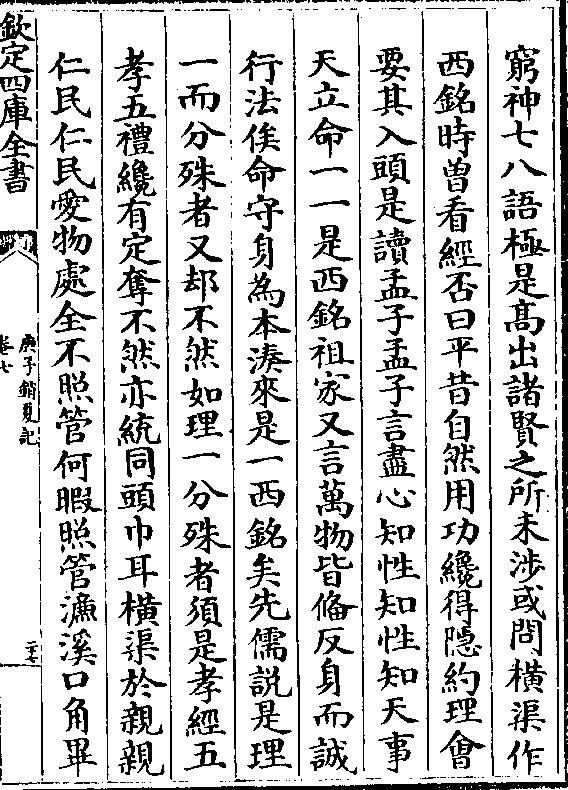 窮神七八語極是高出諸賢之所未渉或問横渠作
西銘時曽看經否曰平昔自然用功纔得隠約理會
要其入頭是讀孟子孟子言盡心知性知性知天事
天立命一一是西銘祖家又言萬物皆備反身而誠
行法俟命守身為本湊來是一西銘矣先儒説是理
一而分殊者又却不然如理一分殊者須是孝經五
孝五禮纔有定奪不然亦統同頭巾耳横渠於親親
仁民仁民愛物處全不照管何暇照管濂溪口角畢
欽定四庫全書
庚子銷夏記
卷七
二十七